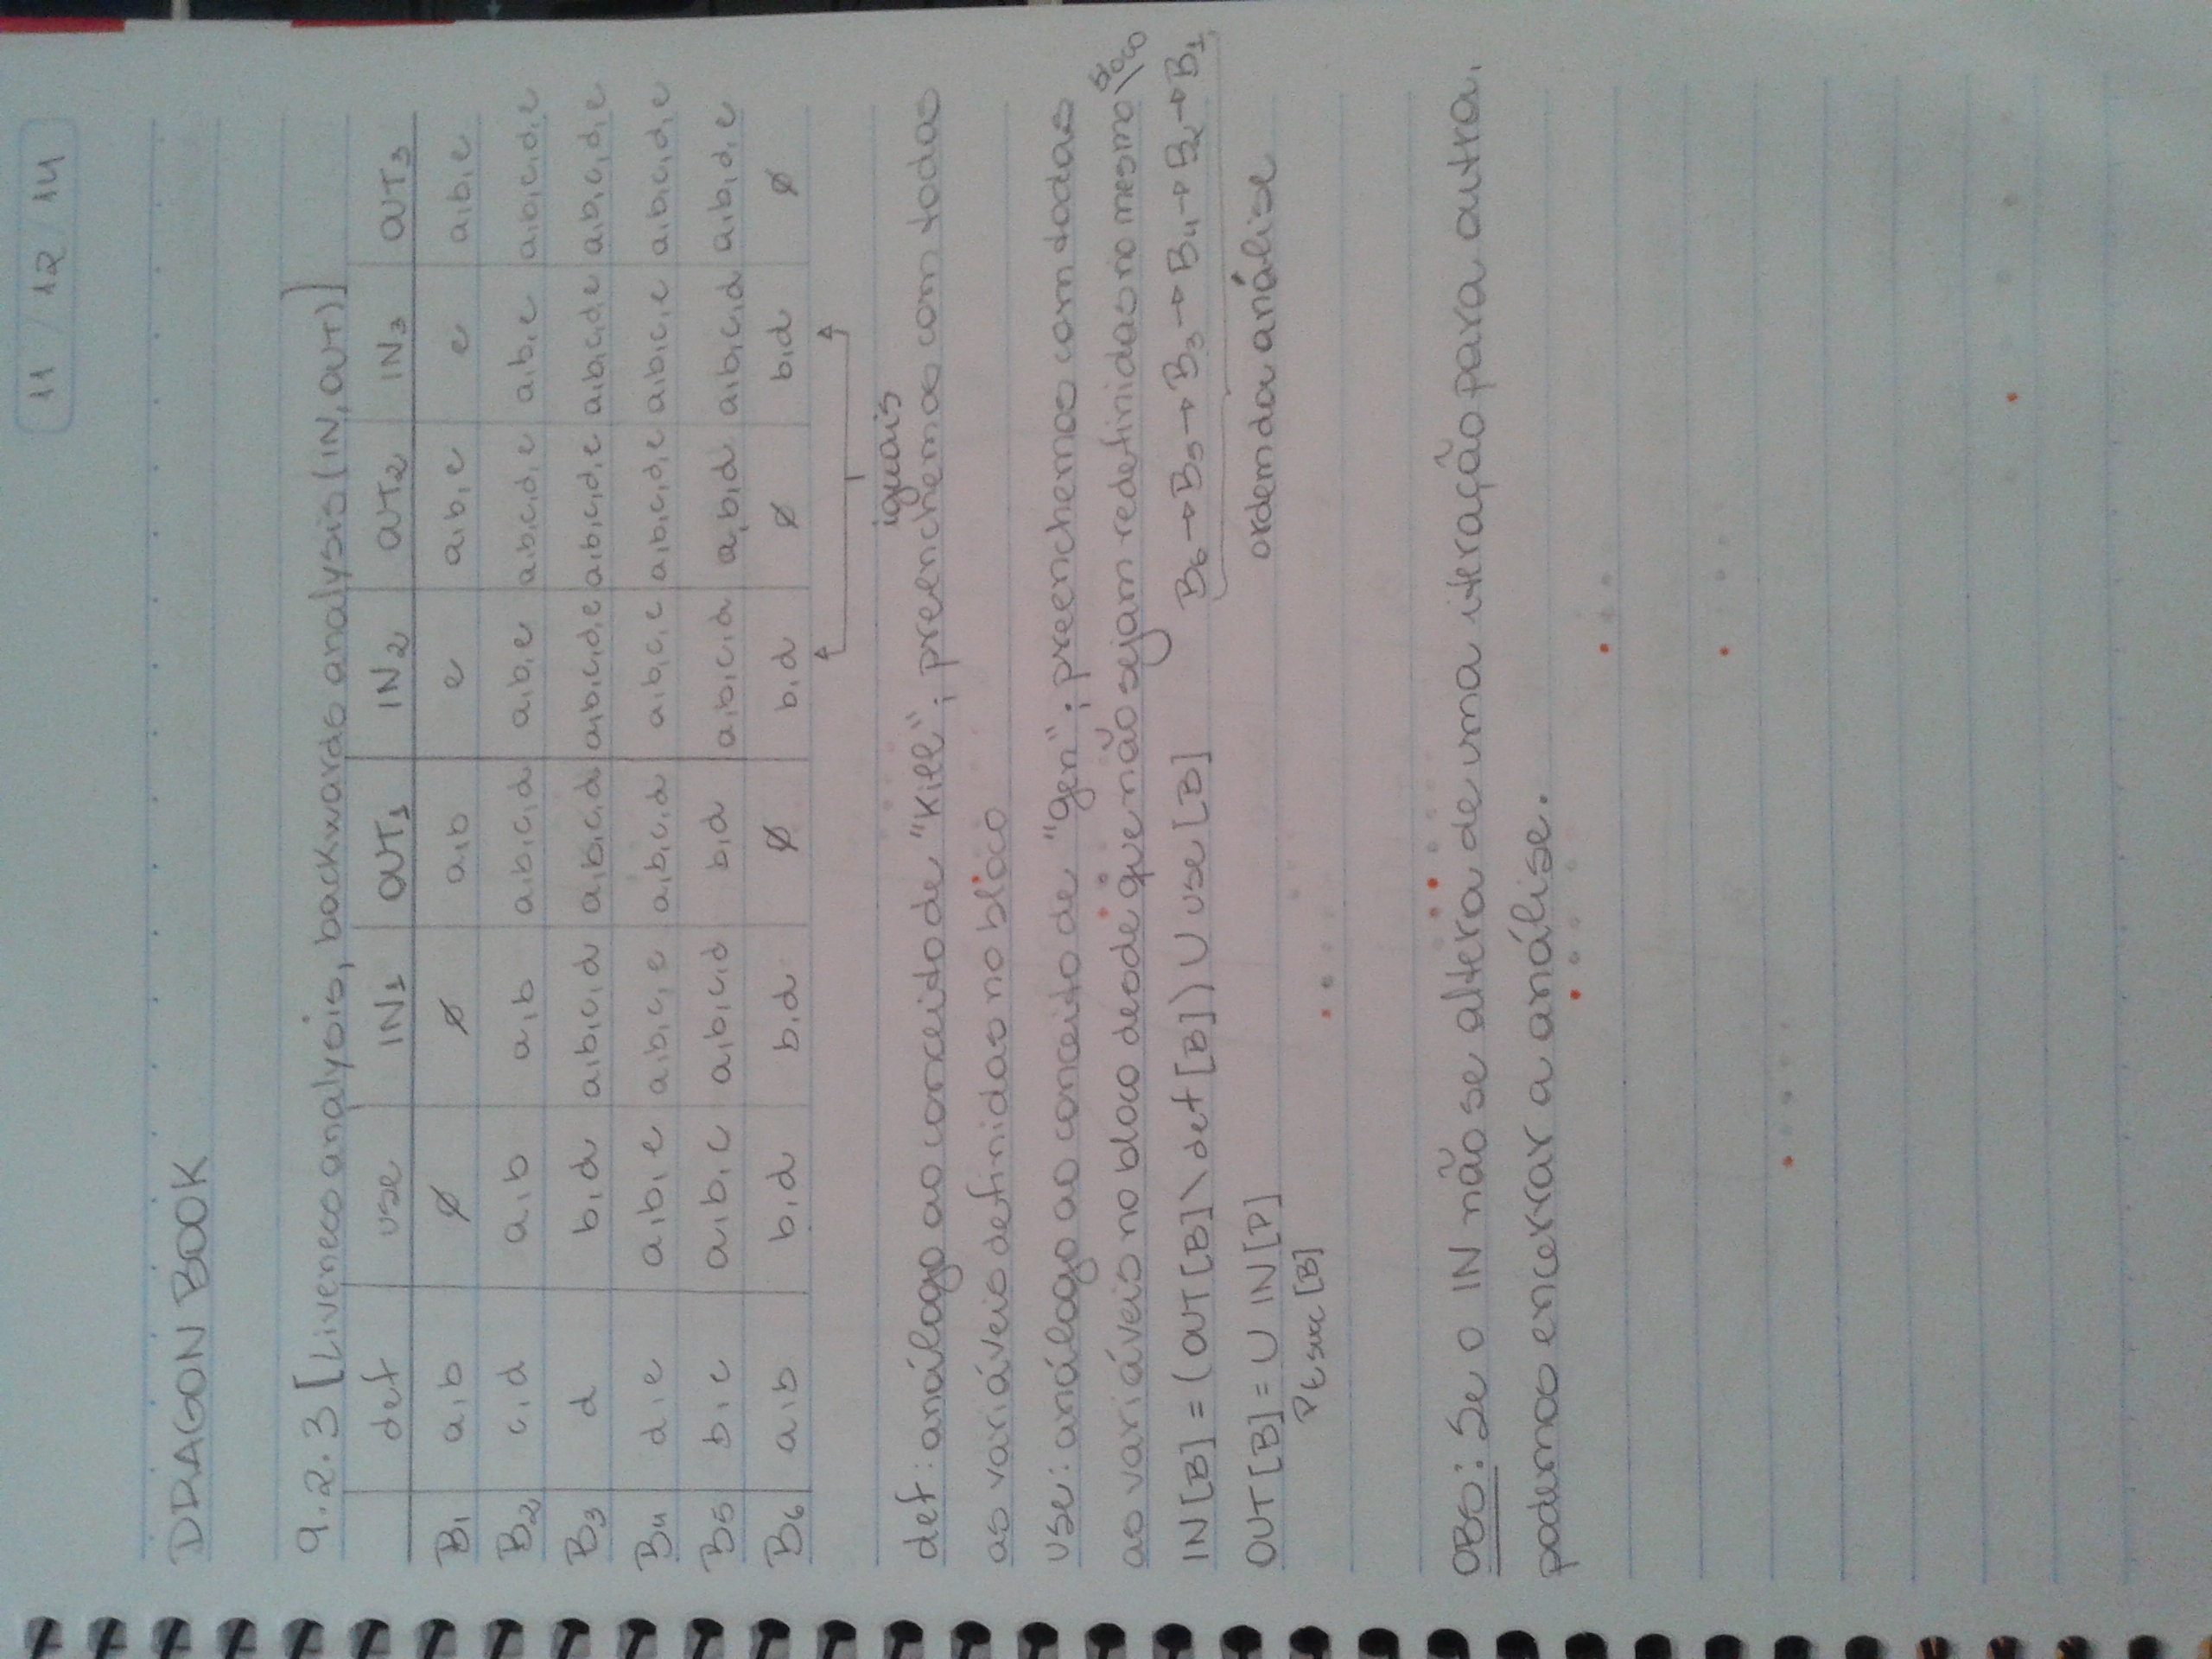 11 / 12 / 14
DRAGON BOOK
9.2.3 [Liveness analysis, backwards analysis (IN, OUT)]
def use IN1 OUT1 IN2 OUT2 IN3 OUT3
B1 a,b ∅ ∅ a,b e a,b,e e a,b,e
B2 c,d a,b a,b a,b,c,d a,b,e a,b,c,d,e a,b,e a,b,c,d,e
B3 d b,d a,b,c,d a,b,c,d a,b,c,d,e a,b,c,d,e a,b,c,d,e a,b,c,d,e
B4 d,e a,b,e a,b,c,e a,b,c,d a,b,c,e a,b,c,d,e a,b,c,e a,b,c,d,e
B5 b,c a,b,c a,b,c,d b,d a,b,c,d a,b,d a,b,c,d a,b,d,e
B6 a,b b,d b,d ∅ b,d ∅ b,d ∅
iguais
def: análogo ao conceito de "Kill"; preenchemos com todas
as variáveis definidas no bloco
use: análogo ao conceito de "gen"; preenchemos com todas
as variáveis no bloco desde que não sejam redefinidas no mesmo bloco
IN[B] = (OUT[B] \ def[B]) ∪ use[B] B6 → B5 → B3 → B4 → B2 → B1
OUT[B] = ∪ IN[P] ordem da análise
P∈succ[B]
OBS: Se o IN não se altera de uma iteração para outra,
podemos encerrar a análise.